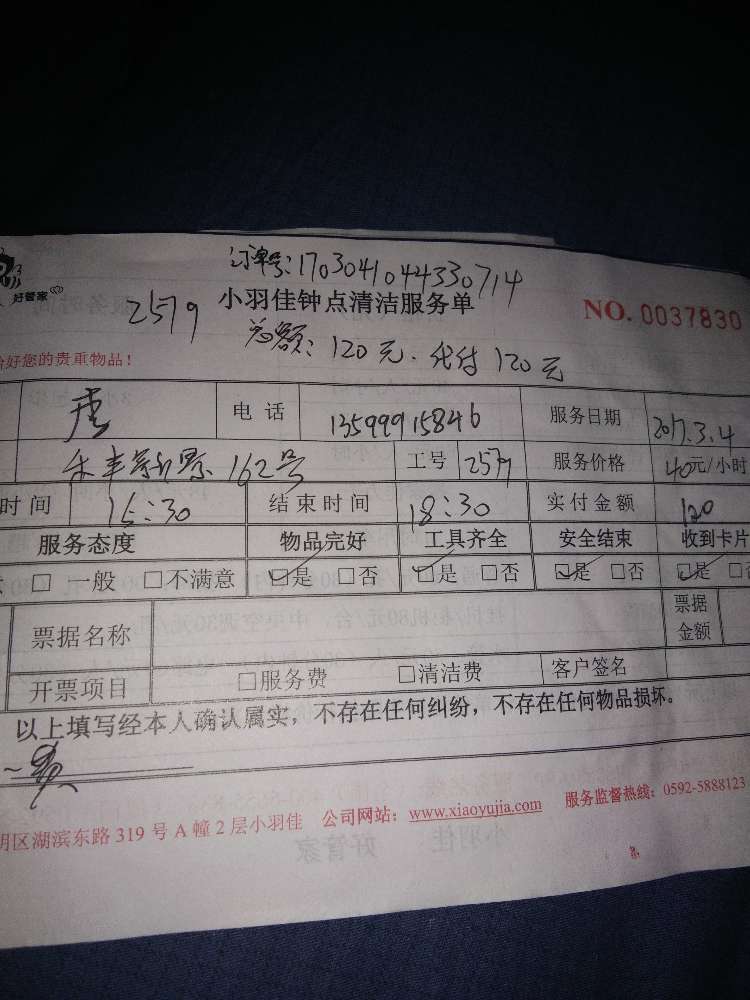 订单号:1703041044330714
好管家
2579 小羽佳钟点清洁服务单 NO. 0037830
总额: 120元. 代付120元
好您的贵重物品!
电话 13599915846 服务日期 2017.3.4
禾丰新景162号 工号 2579 服务价格 40元/小时
时间 15:30 结束时间 18:30 实付金额 120
服务态度 物品完好 工具齐全 安全结束 收到卡片
□ 一般 □不满意 ☑是 □否 ☑是 □否 ☑是 □否 ☑是 □
票据名称 票据金额
开票项目 □服务费 □清洁费 客户签名
以上填写经本人确认属实，不存在任何纠纷，不存在任何物品损坏。
明区湖滨东路 319 号 A 幢 2 层小羽佳 公司网站：www.xiaoyujia.com 服务监督热线：0592-5888123